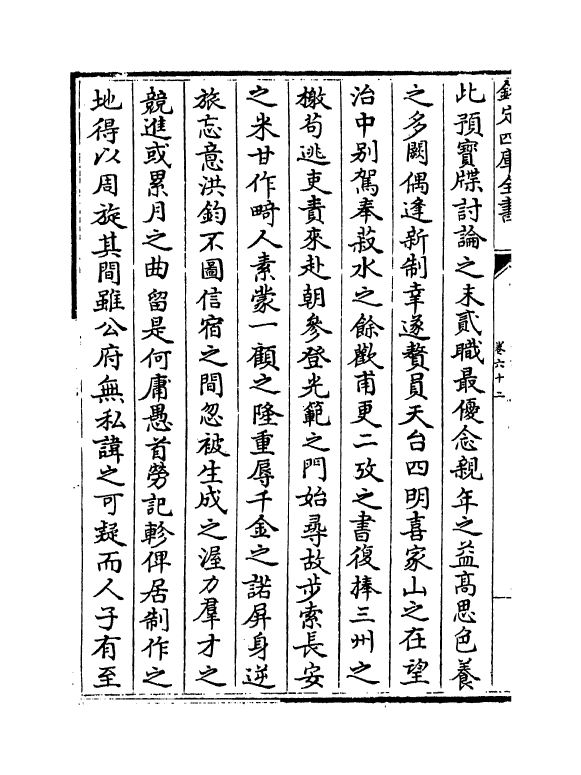 欽定四庫全書
卷六十二
此預寶牒討論之末貳職最優念親年之益高思色養
之多闕偶逢新制幸遂贅員天台四明喜家山之在望
治中别駕奉菽水之餘歡甫更二攷之書復捧三州之
檄茍逃吏責來赴朝參登光範之門始尋故步索長安
之米甘作畸人素蒙一顧之隆重辱千金之諾屏身逆
旅忘意洪鈞不圖信宿之間忽被生成之渥力羣才之
競進或累月之曲留是何庸愚首勞記軫俾居制作之
地得以周旋其間雖公府無私諱之可疑而人子有至